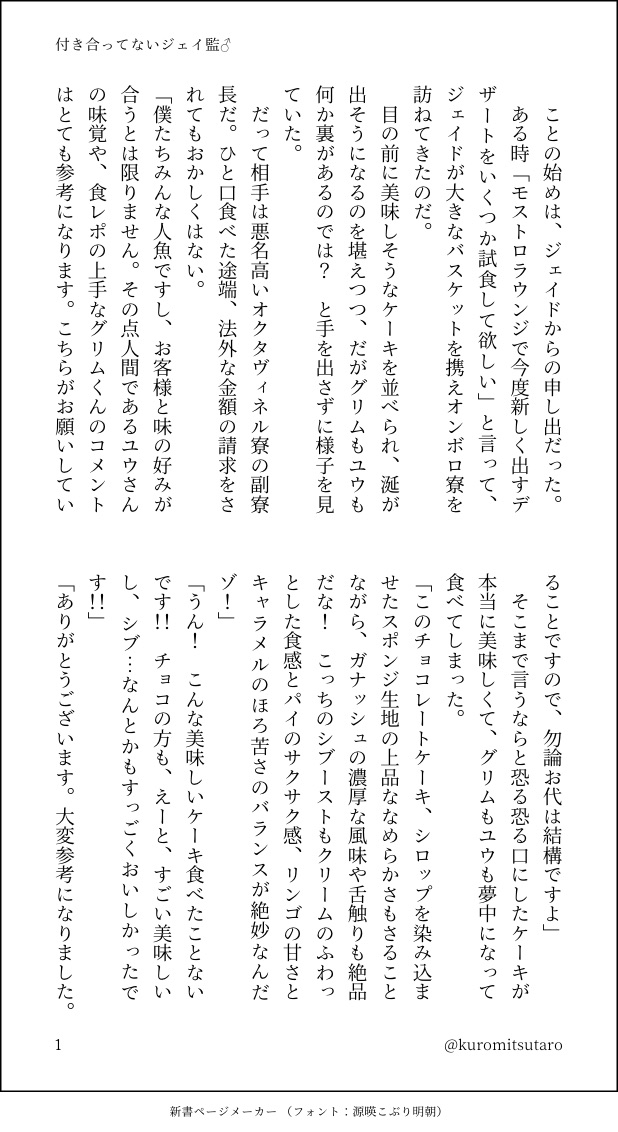 付き合ってないジェイ監♂
ことの始めは、ジェイドからの申し出だった。
ある時「モストロラウンジで今度新しく出すデ
ザートをいくつか試食して欲しい」と言って、
ジェイドが大きなバスケットを携えオンボロ寮を
訪ねてきたのだ。
目の前に美味しそうなケーキを並べられ、涎が
出そうになるのを堪えつつ、だがグリムもユウも
何か裏があるのでは？　と手を出さずに様子を見
ていた。
だって相手は悪名高いオクタヴィネル寮の副寮
長だ。ひと口食べた途端、法外な金額の請求をさ
れてもおかしくはない。
「僕たちみんな人魚ですし、お客様と味の好みが
合うとは限りません。その点人間であるユウさん
の味覚や、食レポの上手なグリムくんのコメント
はとても参考になります。こちらがお願いしてい
ることですので、勿論お代は結構ですよ」
そこまで言うならと恐る恐る口にしたケーキが
本当に美味しくて、グリムもユウも夢中になって
食べてしまった。
「このチョコレートケーキ、シロップを染み込ま
せたスポンジ生地の上品ななめらかさもさること
ながら、ガナッシュの濃厚な風味や舌触りも絶品
だな！　こっちのシブーストもクリームのふわっ
とした食感とパイのサクサク感、リンゴの甘さと
キャラメルのほろ苦さのバランスが絶妙なんだ
ゾ！」
「うん！　こんな美味しいケーキ食べたことない
です!!　チョコの方も、えーと、すごい美味しい
し、シブ…なんとかもすっごくおいしかったで
す!!」
「ありがとうございます。大変参考になりました。
1
@kuromitsutaro
新書ページメーカー（フォント：源暎こぶり明朝）